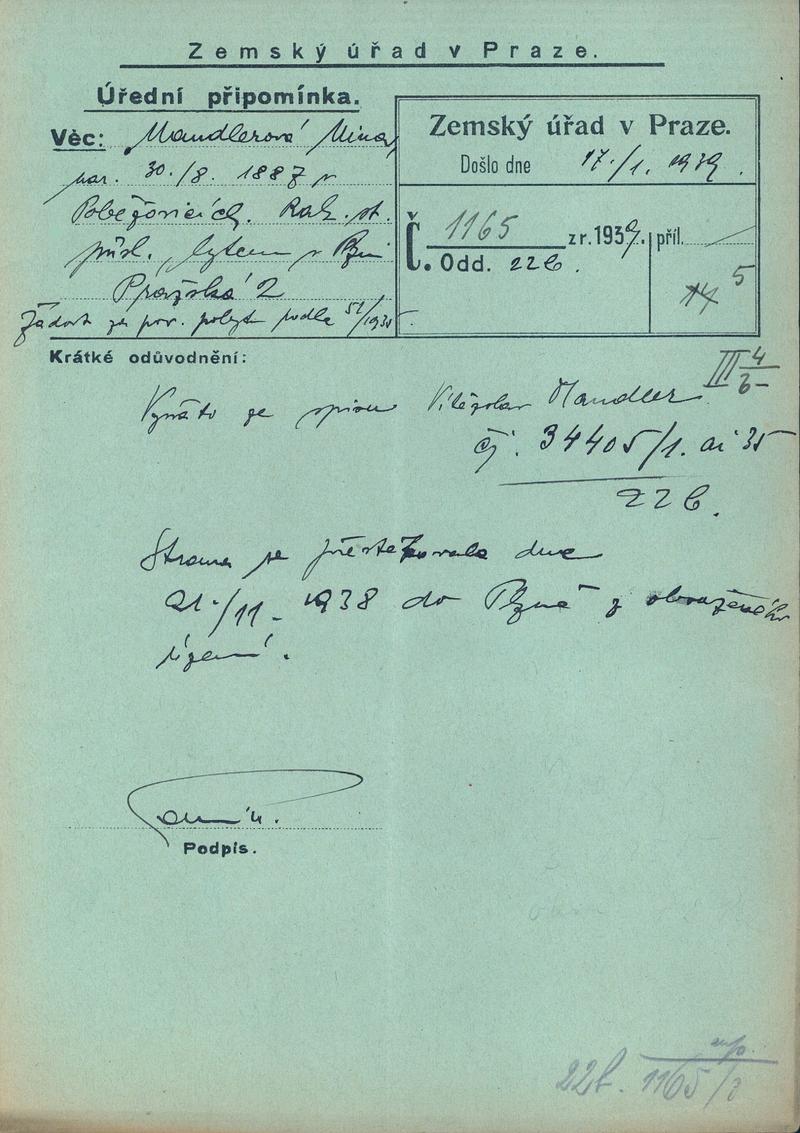 Zemský úřad v Praze.
Úřední připomínka.
Věc: Mandlerová Mina,
nar. 30./8. 1887 v
Poběžovicích. Rak. st.
přísl., bytem v Plzni
Pražská 2
Žádost za pov. pobytu podle 51/1935.
Zemský úřad v Praze.
Došlo dne 17./1. 1939.
Č. 1165 z r. 1939. příl.
Odd. 22b.
14 5
Krátké odůvodnění:
III 4/6-
Vyňato ze spisu Vítězslav Mandler
čj. 34405/1. ai 35
22b.
Strana se přestěhovala dne
21./11. 1938 do Plzně z obsazeného
území.
Podpis.
22b. 1165/